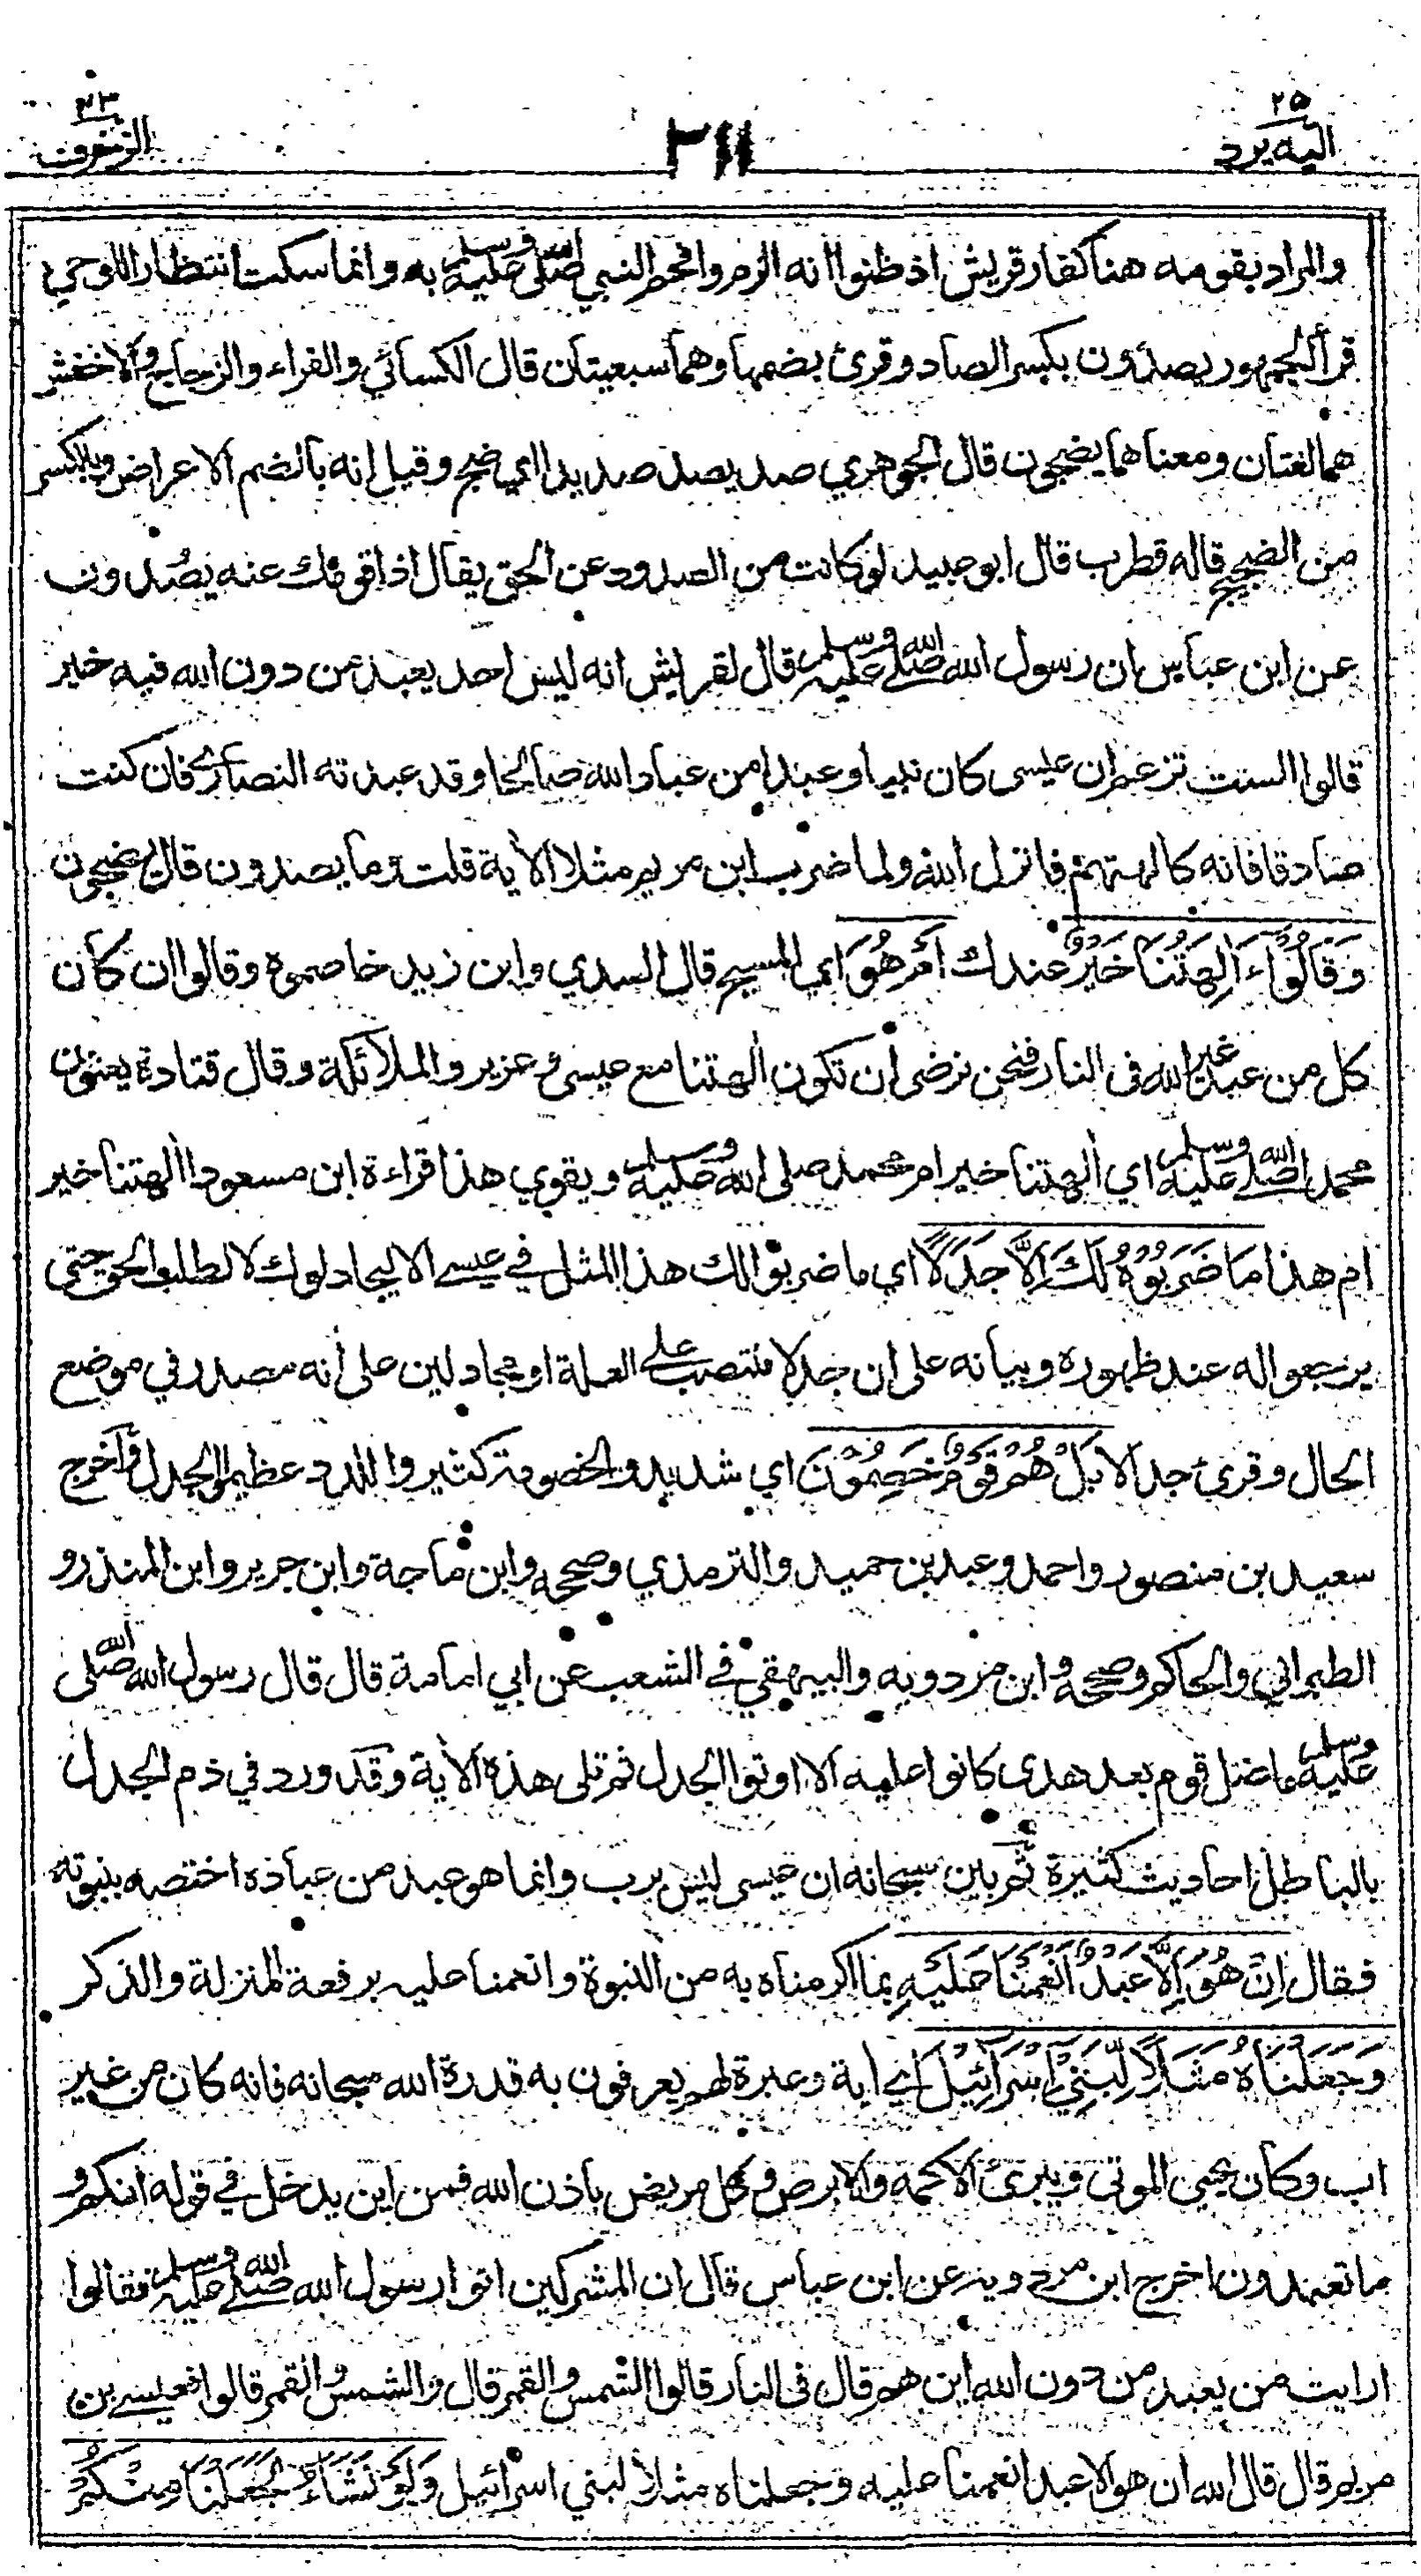 ٢٥
اليه يرد
٢١١
٤٣
الزخرف
والمراد بقومه هنا كفار قريش اذ ظنوا انه الزم وافحم النبي صلى الله عليه وسلم به وانما سكت انتظارا للوحي
قرأ الجمهور يصدون بكسر الصاد وقرئ بضمها وهما سبعيتان قال الكسائي والفراء والزجاج والاخفش
هما لغتان ومعناهما يضجون قال الجوهري صد يصد صديدا اي ضج وقيل انه بالضم الاعراض وبالكسر
من الضجيج قاله قطرب قال ابو عبيد لو كانت من الصدود عن الحق يقال اذا قومك عنه يصُدون
عن ابن عباس ان رسول الله صلى الله عليه وسلم قال لقريش انه ليس احد يعبد من دون الله فيه خير
قالوا الست تزعم ان عيسى كان نبيا وعبدا من عباد الله صالحا وقد عبدته النصارى فان كنت
صادقا فانه كالهتهم فانزل الله ولما ضرب ابن مريم مثلا الأية قلت وما يصدون قال يضجون
وَقَالُوْٓا ءَاٰلِهَتُنَا خَيْرٌ عندك اَمْ هُوَ اي المسيح قال السدي وابن زيد خاصموه وقالوا ان كان
كل من عبد غير الله فى النار فنحن نرضى ان تكون ألهتنا مع عيسى وعزير والملائكة وقال قتادة يعنون
محمدا صلى الله عليه وسلم اي ألهتنا خير ام محمد صلى الله عليه وسلم ويقوي هذا قراءة ابن مسعود األهتنا خير
ام هذا مَا ضَرَبُوْهُ لَكَ اِلَّا جَدَلًا اي ما ضربوا لك هذا المثل في عيسى الا ليجادلوك لا لطلب الحق حتى
يرجعوا له عند ظهوره وبيانه على ان جدلا منتصب على العلة او مجادلين على انه مصدر في موضع
الحال وقرئ جدالا بَلْ هُمْ قَوْمٌ خَصِمُوْنَ اي شديدو الخصومة كثيرو اللدد عظيموا الجدل واخرج
سعيد بن منصور واحمد وعبد بن حميد والترمذي وصححه وابن ماجة وابن جرير وابن المنذر و
الطبراني والحاكم وصححه وابن مردويه والبيهقي في الشعب عن ابي امامة قال قال رسول الله صلى الله
عليه وسلم ما ضل قوم بعد هدى كانوا عليه الا اوتوا الجدل ثم تلى هذه الأية وقد ورد في ذم الجدل
بالباطل احاديث كثيرة ثم بين سبحانه ان عيسى ليس برب وانما هو عبد من عباده اختصه بنبوته
فقال اِنْ هُوَ اِلَّا عَبْدٌ اَنْعَمْنَا عَلَيْهِ بما اكرمناه به من النبوة وانعمنا عليه برفعة المنزلة والذكر
وَجَعَلْنَاهُ مَثَلًا لِّبَنِيْ اِسْرَآئِيْلَ اي أية وعبرة لهم يعرفون به قدرة الله سبحانه فانه كان من غير
اب وكان يحيى الموتى ويبرئ الاكمه والابرص وكل مريض باذن الله فمن اين يدخل في قوله انكم و
ما تعبدون اخرج ابن مردويه عن ابن عباس قال ان المشركين اتوا رسول الله صلى الله عليه وسلم فقالوا
ارايت من يعبد من دون الله اين هم قال فى النار قالوا الشمس والقمر قال والشمس والقمر قالوا فعيسى بن
مريم قال قال الله ان هو الا عبد انعمنا عليه وجعلناه مثلا لبني اسرائيل وَلَوْ نَشَآءُ لَجَعَلْنَا مِنْكُمْ